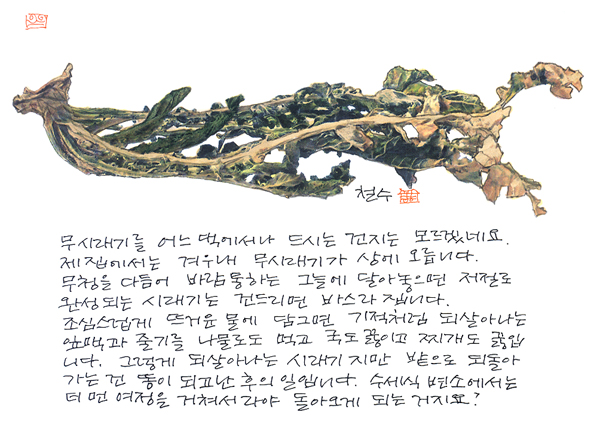 철수
무시래기를 어느 댁에서나 드시는 건지는 모르겠네요.
제집에서는 겨우내 무시래기가 상에 오릅니다.
무청을 다듬어 바람통하는 그늘에 달아놓으면 저절로
완성되는 시래기는 건드리면 바스라집니다.
조심스럽게 뜨거운 물에 담그면 기적처럼 되살아나는
잎맥과 줄기를 나물로도 먹고 국도 끓이고 찌개도 끓입
니다. 그렇게 되살아나는 시래기지만 밭으로 되돌아
가는 건 똥이 되고난 후의 일입니다. 수세식 변소에서는
더 먼 여정을 거쳐서라야 돌아오게 되는 거지요?